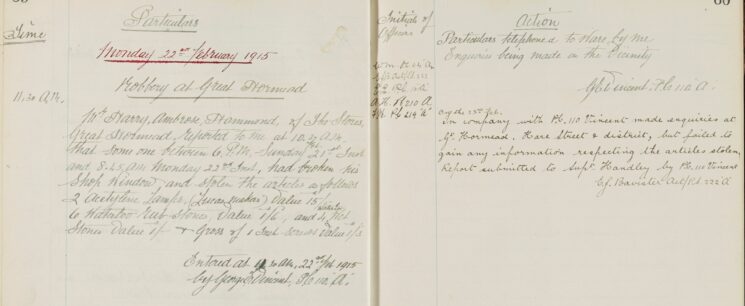 Particulars
Time
Monday 22nd February 1915
Robbery at Great Hormead
11.30 A.M.
Mr Harry, Ambrose, Hammond, of The Stores,
Great Hormead, reported to me at 10.30 A.M.
that some one between 6 P.M. Sunday 21st Inst
and 8.45 AM Monday 22nd Inst, had broken his
Shop Window and stolen the articles as follows
2 Acetylene Lamps, (Lucas makers) Value 15/
6 Rub Stones, Value 1/6, and 4
Stones Value 1/- & Gross of 1 Inst screws Value 1/3
Entered at 11.30 AM, 22nd Feb 1915
by George Vincent, P.C. 110. A.
Initials of
Officers
Action
Particulars telephoned to Hare, by me
Enquiries being made in the Vicinity
G Vincent. P.C. 110. A.
22nd Feb.
In company with P.C. 110 Vincent made enquiries at
Gt. Hormead, Hare Street & district, but failed to
gain any information respecting the articles stolen,
Report submitted to Supt. Handley by P.C. 110 Vincent
Bavister